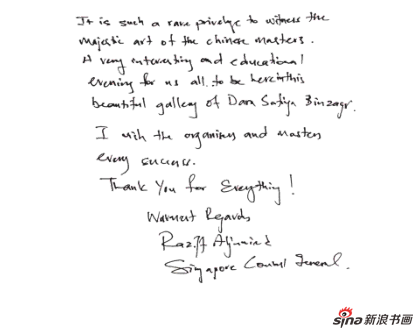 It is such a rare privelge to witness the
majestic art of the chinese masters.
A very interesting and educational
evening for us all to be here in this
beautiful gallery of Dara Safiya Binzagr.
I wish the organisers and masters
every success.
Thank You for Everything!
Warmest Regards
Raziff Aljunied
Singapore Consul General.
sina 新浪书画